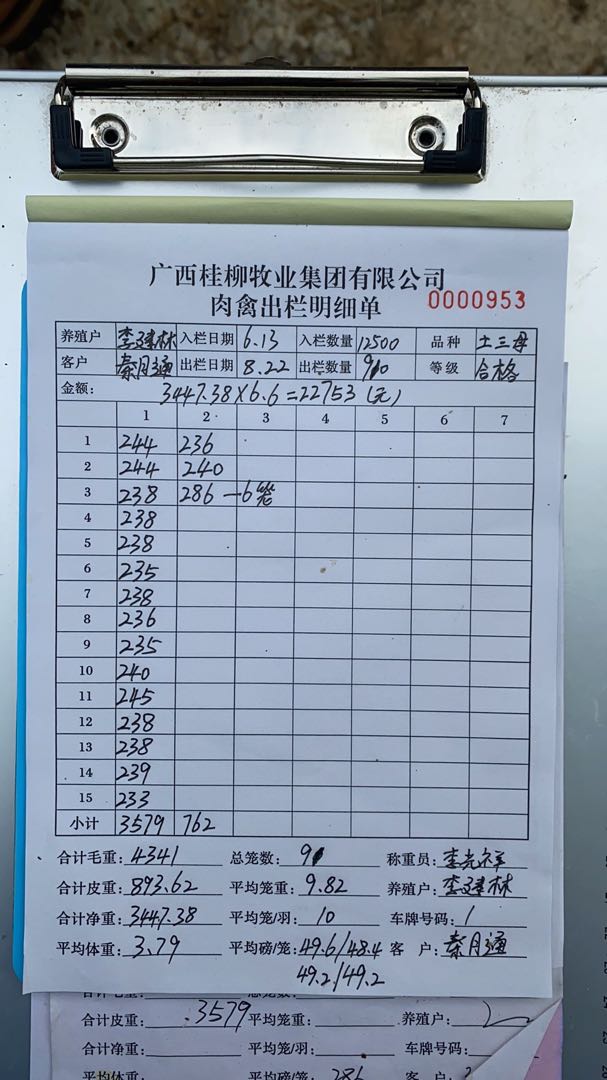 广西桂柳牧业集团有限公司
肉禽出栏明细单 0000953
养殖户 李建林 入栏日期 6.13 入栏数量 12500 品种 土三母
客户 秦月通 出栏日期 8.22 出栏数量 910 等级 合格
金额: 3447.38×6.6=22753(元)
1 2 3 4 5 6 7
1 244 236
2 244 240
3 238 286 —6笼
4 238
5 238
6 235
7 238
8 236
9 235
10 240
11 245
12 238
13 238
14 239
15 233
小计 3579 762
合计毛重: 4341 总笼数: 91 称重员: 李光祥
合计皮重: 893.62 平均笼重: 9.82 养殖户: 李建林
合计净重: 3447.38 平均笼/羽: 10 车牌号码: 1
平均体重: 3.79 平均磅/笼: 49.6/48.4 客 户: 秦月通
49.2/49.2
合计皮重: 3579 平均笼重: 养殖户:
合计净重: 平均笼/羽: 车牌号码:
平均体重: 平均磅/笼: 286 客 户: